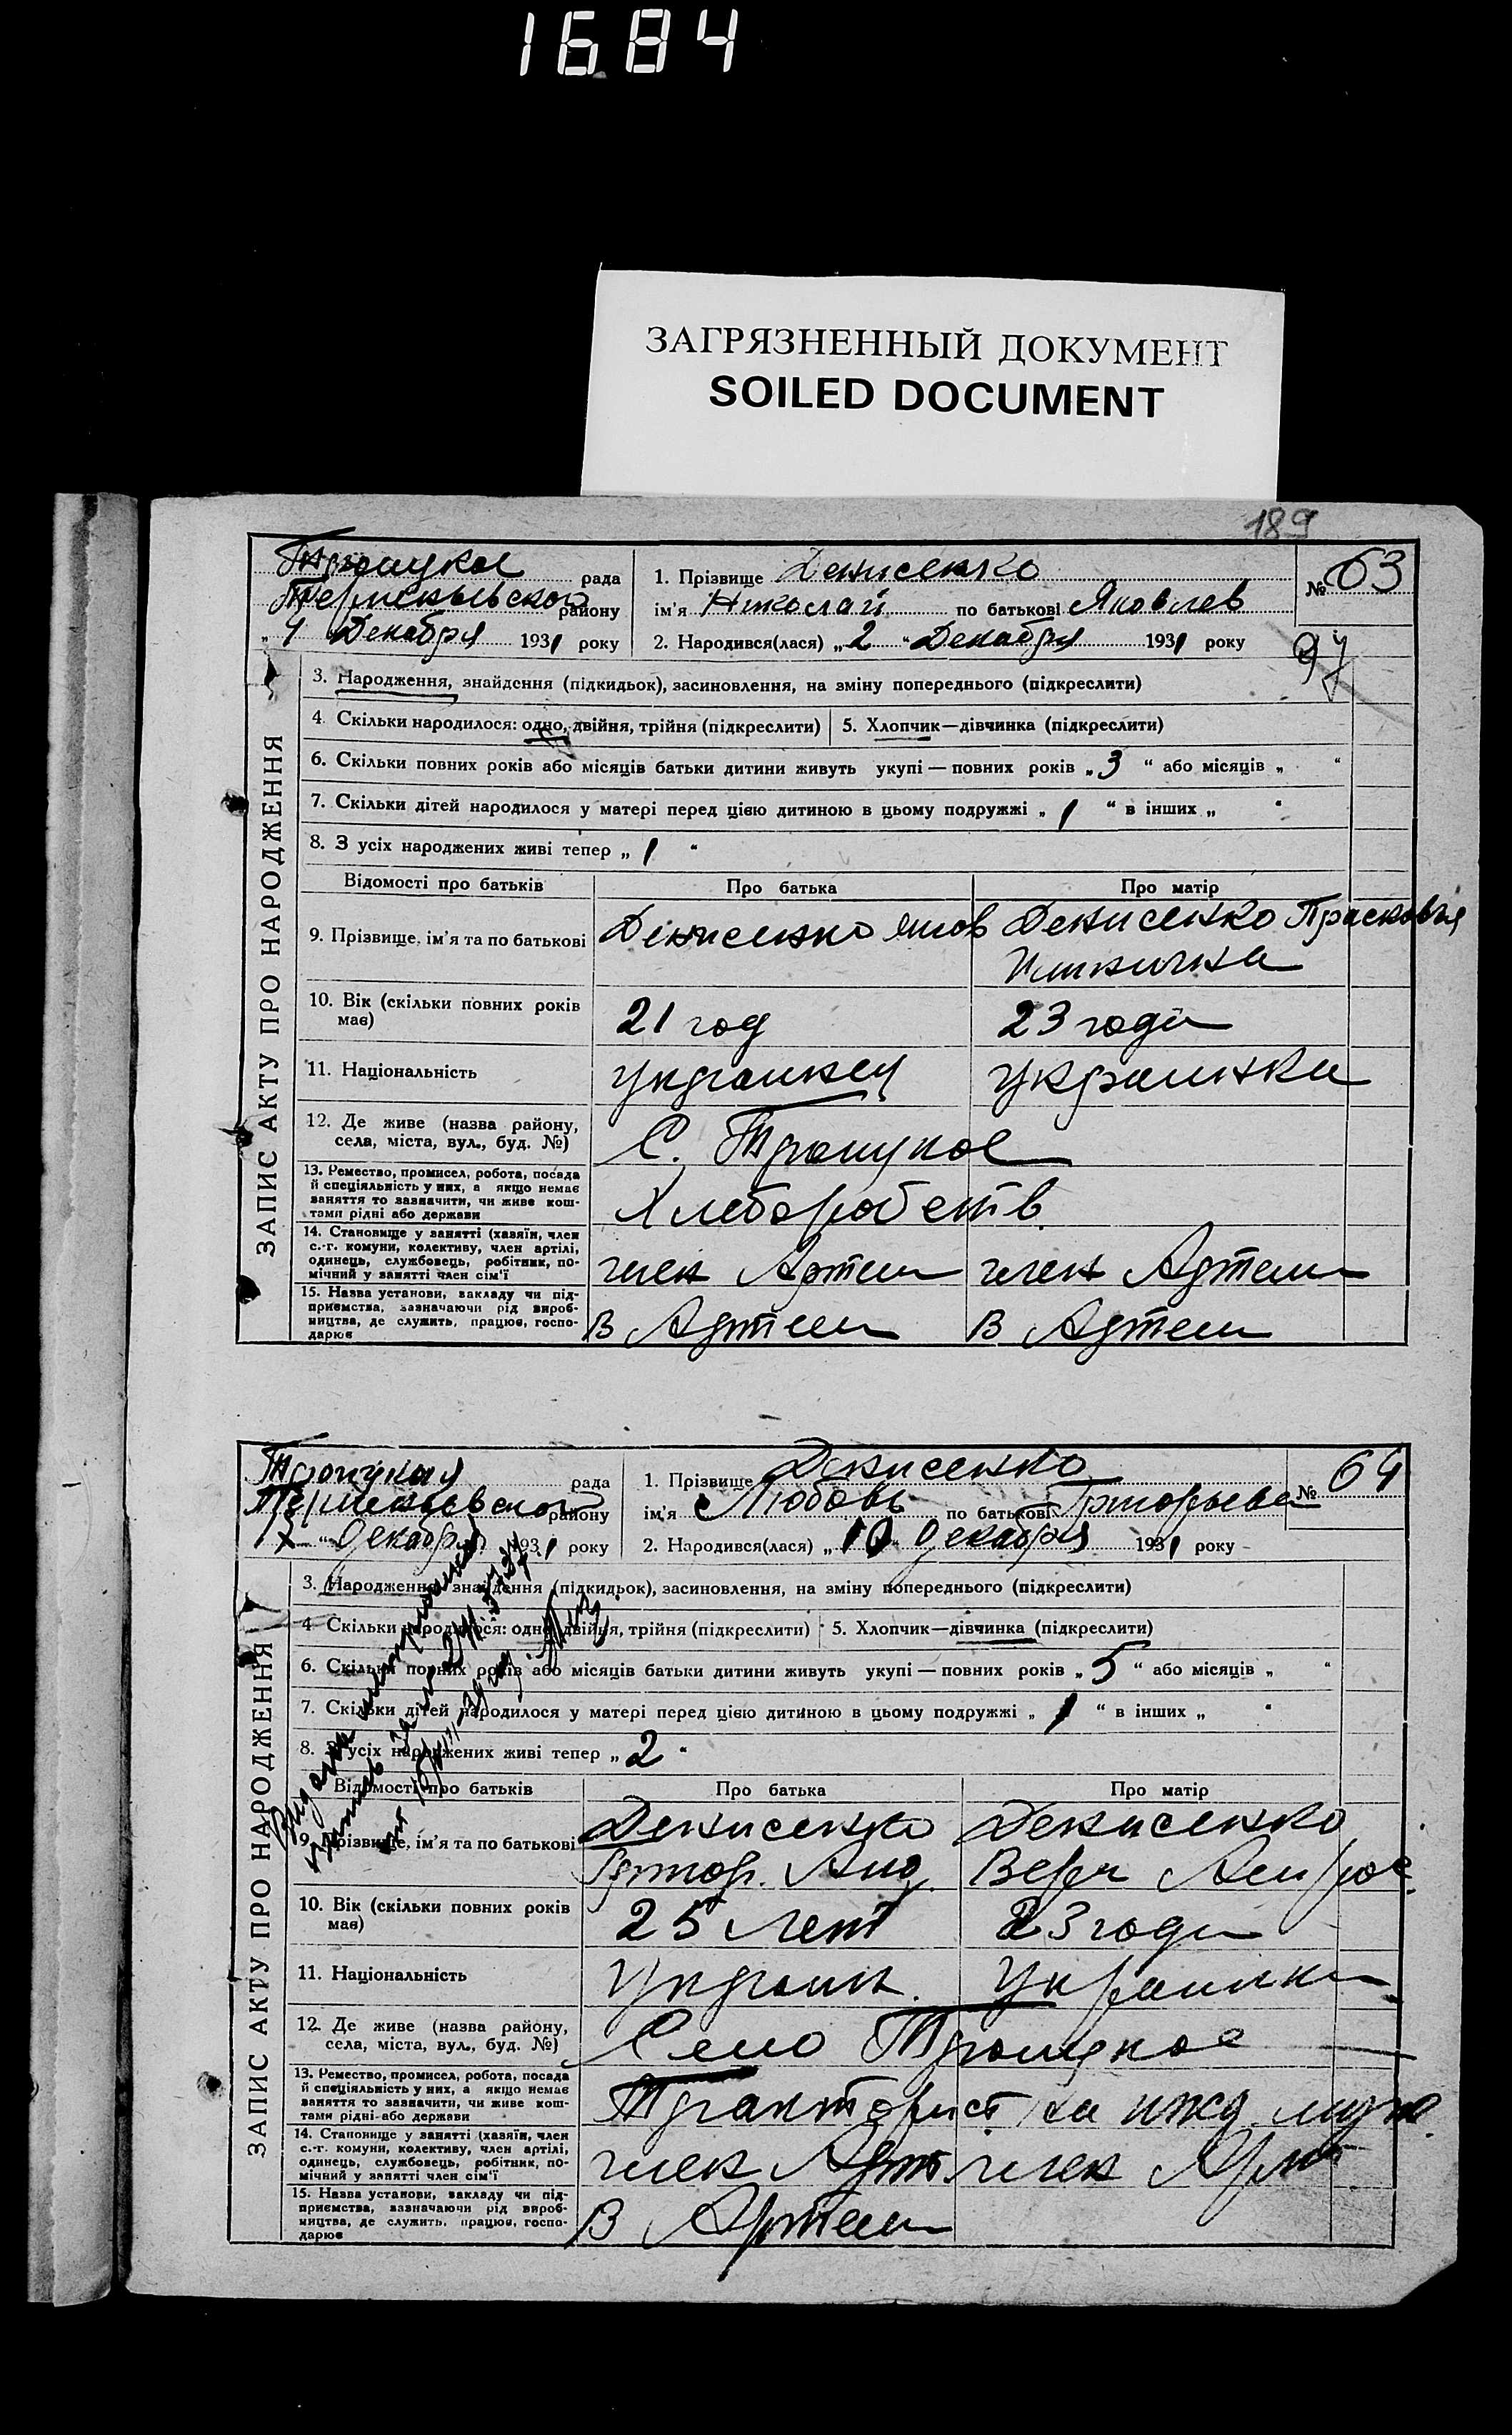 1684
ЗАГРЯЗНЕННЫЙ ДОКУМЕНТ
SOILED DOCUMENT
189
ЗАПИС АКТУ ПРО НАРОДЖЕННЯ
Троицкое рада
району
„4 Декабря 1931 року
1. Прізвище Денисенко
ім'я Николай по батькові Яковлев
2. Народився(лася) „2 “ Декабря 1931 року
№ 63
97
3. Народження, знайдення (підкидьок), засиновлення, на зміну попереднього (підкреслити)
4. Скільки народилося: одно, двійня, трійня (підкреслити) 5. Хлопчик—дівчинка (підкреслити)
6. Скільки повних років або місяців батьки дитини живуть укупі — повних років „3 “ або місяців „ “
7. Скільки дітей народилося у матері перед цією дитиною в цьому подружжі „ 1 “ в інших „ “
8. З усіх народжених живі тепер „ 1 “
Відомості про батьків Про батька Про матір
9. Прізвище, ім'я та по батькові Денисенко Яков Денисенко Прасковья
10. Вік (скільки повних років має) 21 год 23 года
11. Національність украинец украинка
12. Де живе (назва району,
села, міста, вул., буд. №) С. Троицкое
13. Ремество, промисел, робота, посада
й спеціяльність у них, а якщо немає
заняття то зазначити, чи живе кош-
тами рідні або держави
Хлеборобств.
14. Становище у занятті (хазяїн, член
с.-г. комуни, колективу, член артілі,
одинець, службовець, робітник, по-
мічний у занятті член сім'ї
член Артели член Артели
15. Назва установи, закладу чи під-
приємства, зазначаючи рід вироб-
ництва, де служить, працює, госпо-
дарює
В Артели В Артели
ЗАПИС АКТУ ПРО НАРОДЖЕННЯ
Троицкая рада
району
17 “ Декабря 1931 року
1. Прізвище Денисенко
ім'я Любовь по батькові Григорьева
2. Народився(лася) „ 10 “ Декабря 1931 року
№ 64
3. Народження, знайдення (підкидьок), засиновлення, на зміну попереднього (підкреслити)
4. Скільки народилося: одно, двійня, трійня (підкреслити) 5. Хлопчик—дівчинка (підкреслити)
6. Скільки повних років або місяців батьки дитини живуть укупі — повних років „ 5 “ або місяців „ “
7. Скільки дітей народилося у матері перед цією дитиною в цьому подружжі „ 1 “ в інших „ “
8. З усіх народжених живі тепер „ 2 “
Відомості про батьків Про батька Про матір
9. Прізвище, ім'я та по батькові Денисенко Денисенко
Григор. Анд. Вера
10. Вік (скільки повних років має) 25 лет 23 года
11. Національність Украин. Украинка
12. Де живе (назва району,
села, міста, вул., буд. №) Село Троицкое
13. Ремество, промисел, робота, посада
й спеціяльність у них, а якщо немає
заняття то зазначити, чи живе кош-
тами рідні або держави
Тракторист на ижд. мужа
14. Становище у занятті (хазяїн, член
с.-г. комуни, колективу, член артілі,
одинець, службовець, робітник, по-
мічний у занятті член сім'ї
член Арт. член Арт.
15. Назва установи, закладу чи під-
приємства, зазначаючи рід вироб-
ництва, де служить, працює, госпо-
дарює
В Артели